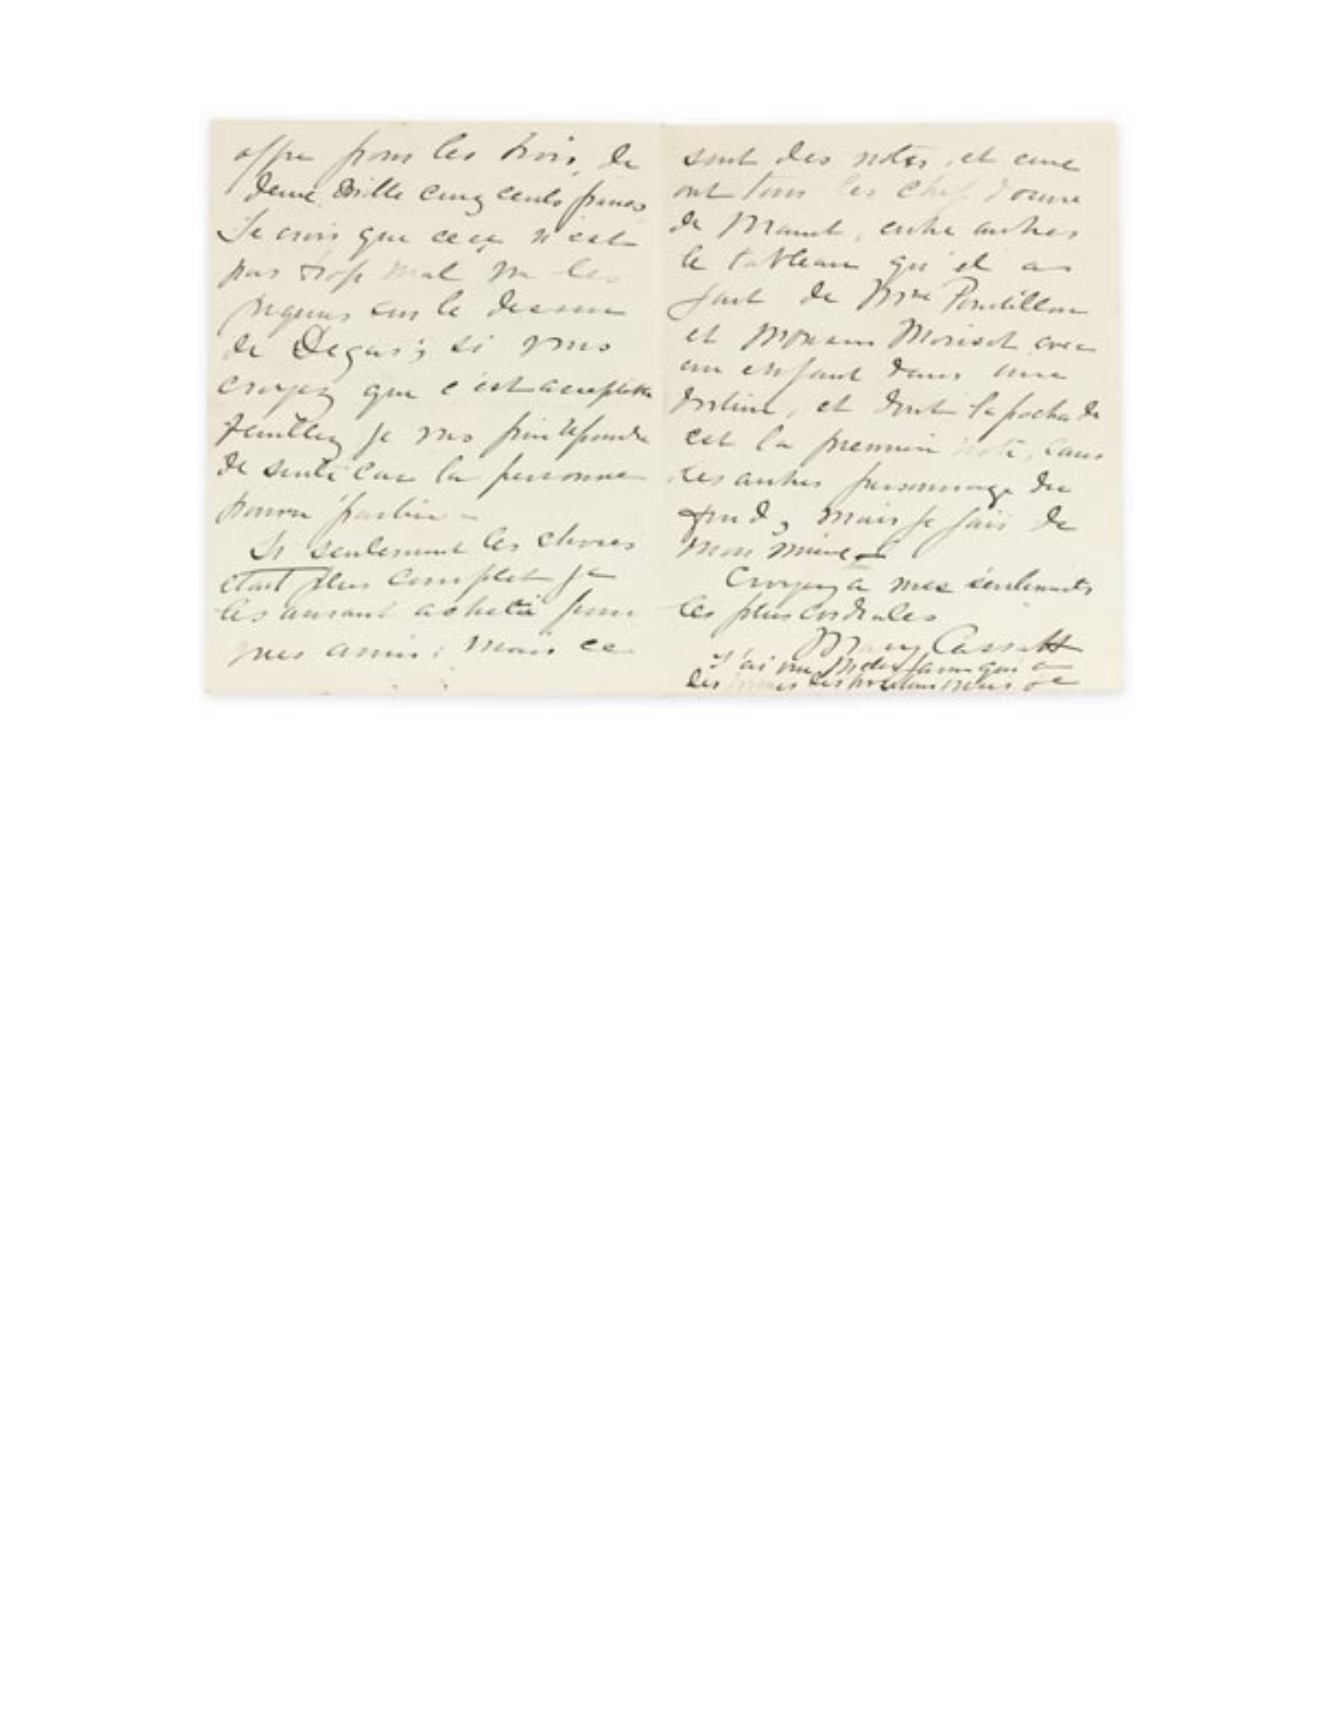 offre pour les trois, de
deux mille cinq cents francs
Je crois que ceci n'est
pas trop mal vu les
piqures sur le dessin
de Degas; si vous
croyez que c'est acceptable
Veuillez je vous prie repondre
de suite car la personne
pourra partir -
Si seulement les choses
etait plus complet je
les aurait acheté pour
mes amis; mais ce
sont des notes, et eux
ont tous les chef d'ouvre
de Manet, entre autres
le tableau qu'il a
fait de Mme Pontillon
et Morisot avec
un enfant dans une
et dont la pochade
est la premiere note, sans
les autres personnage du
fond, mais je fais de
mon mieux -
Croyez a mes sentiments
les plus cordiales
Mary Cassatt
J'ai vu qui a
les